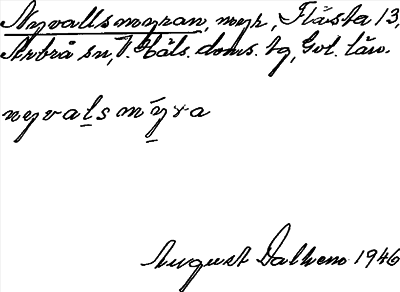 Nyvallsmyran, myr, Flästa 13,
Arbrå sn, V. Häls. doms. tg, Gvl. län.
nyvaḻs mȳ̱ra
August Dalhem 1946